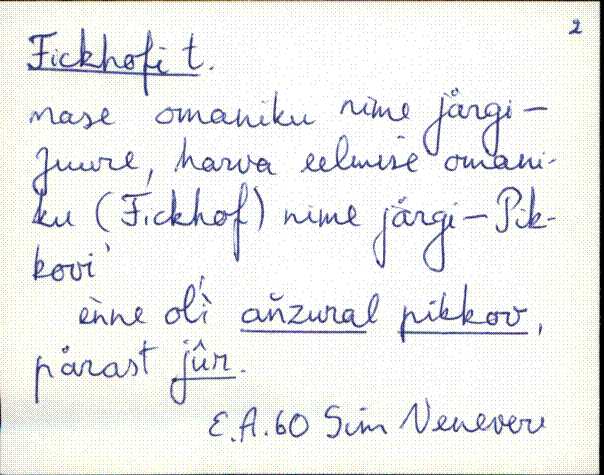 2
Fickhofi t.
nase omaniku nime järgi —
Juure, harva eelmise omani-
ku (Fickhof) nime järgi — Pik-
kovi'
ènne oĺì ańzural pikkov,
pärast jûr.
E.A. 60 Sim Venevere